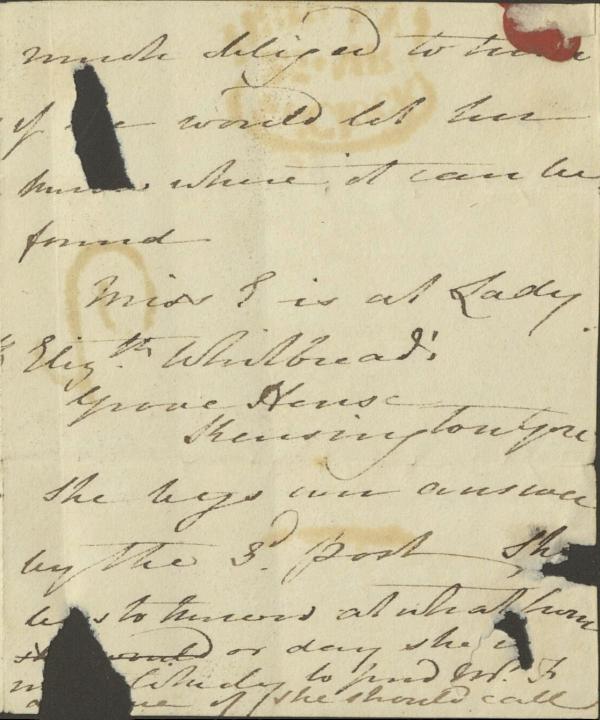 much obliged to him
if he would let her
know where it can be
found
Miss F is at Lady
Eliz.th Whitbread's
Grove House
Kensington Gore
She begs an answer
by the 3d. post She
begs to know at what hour
or day she is
likely to find Mr. F
if she should call